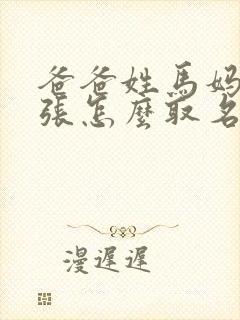 爸爸姓馬媽
張怎麼取名
漫遲遲